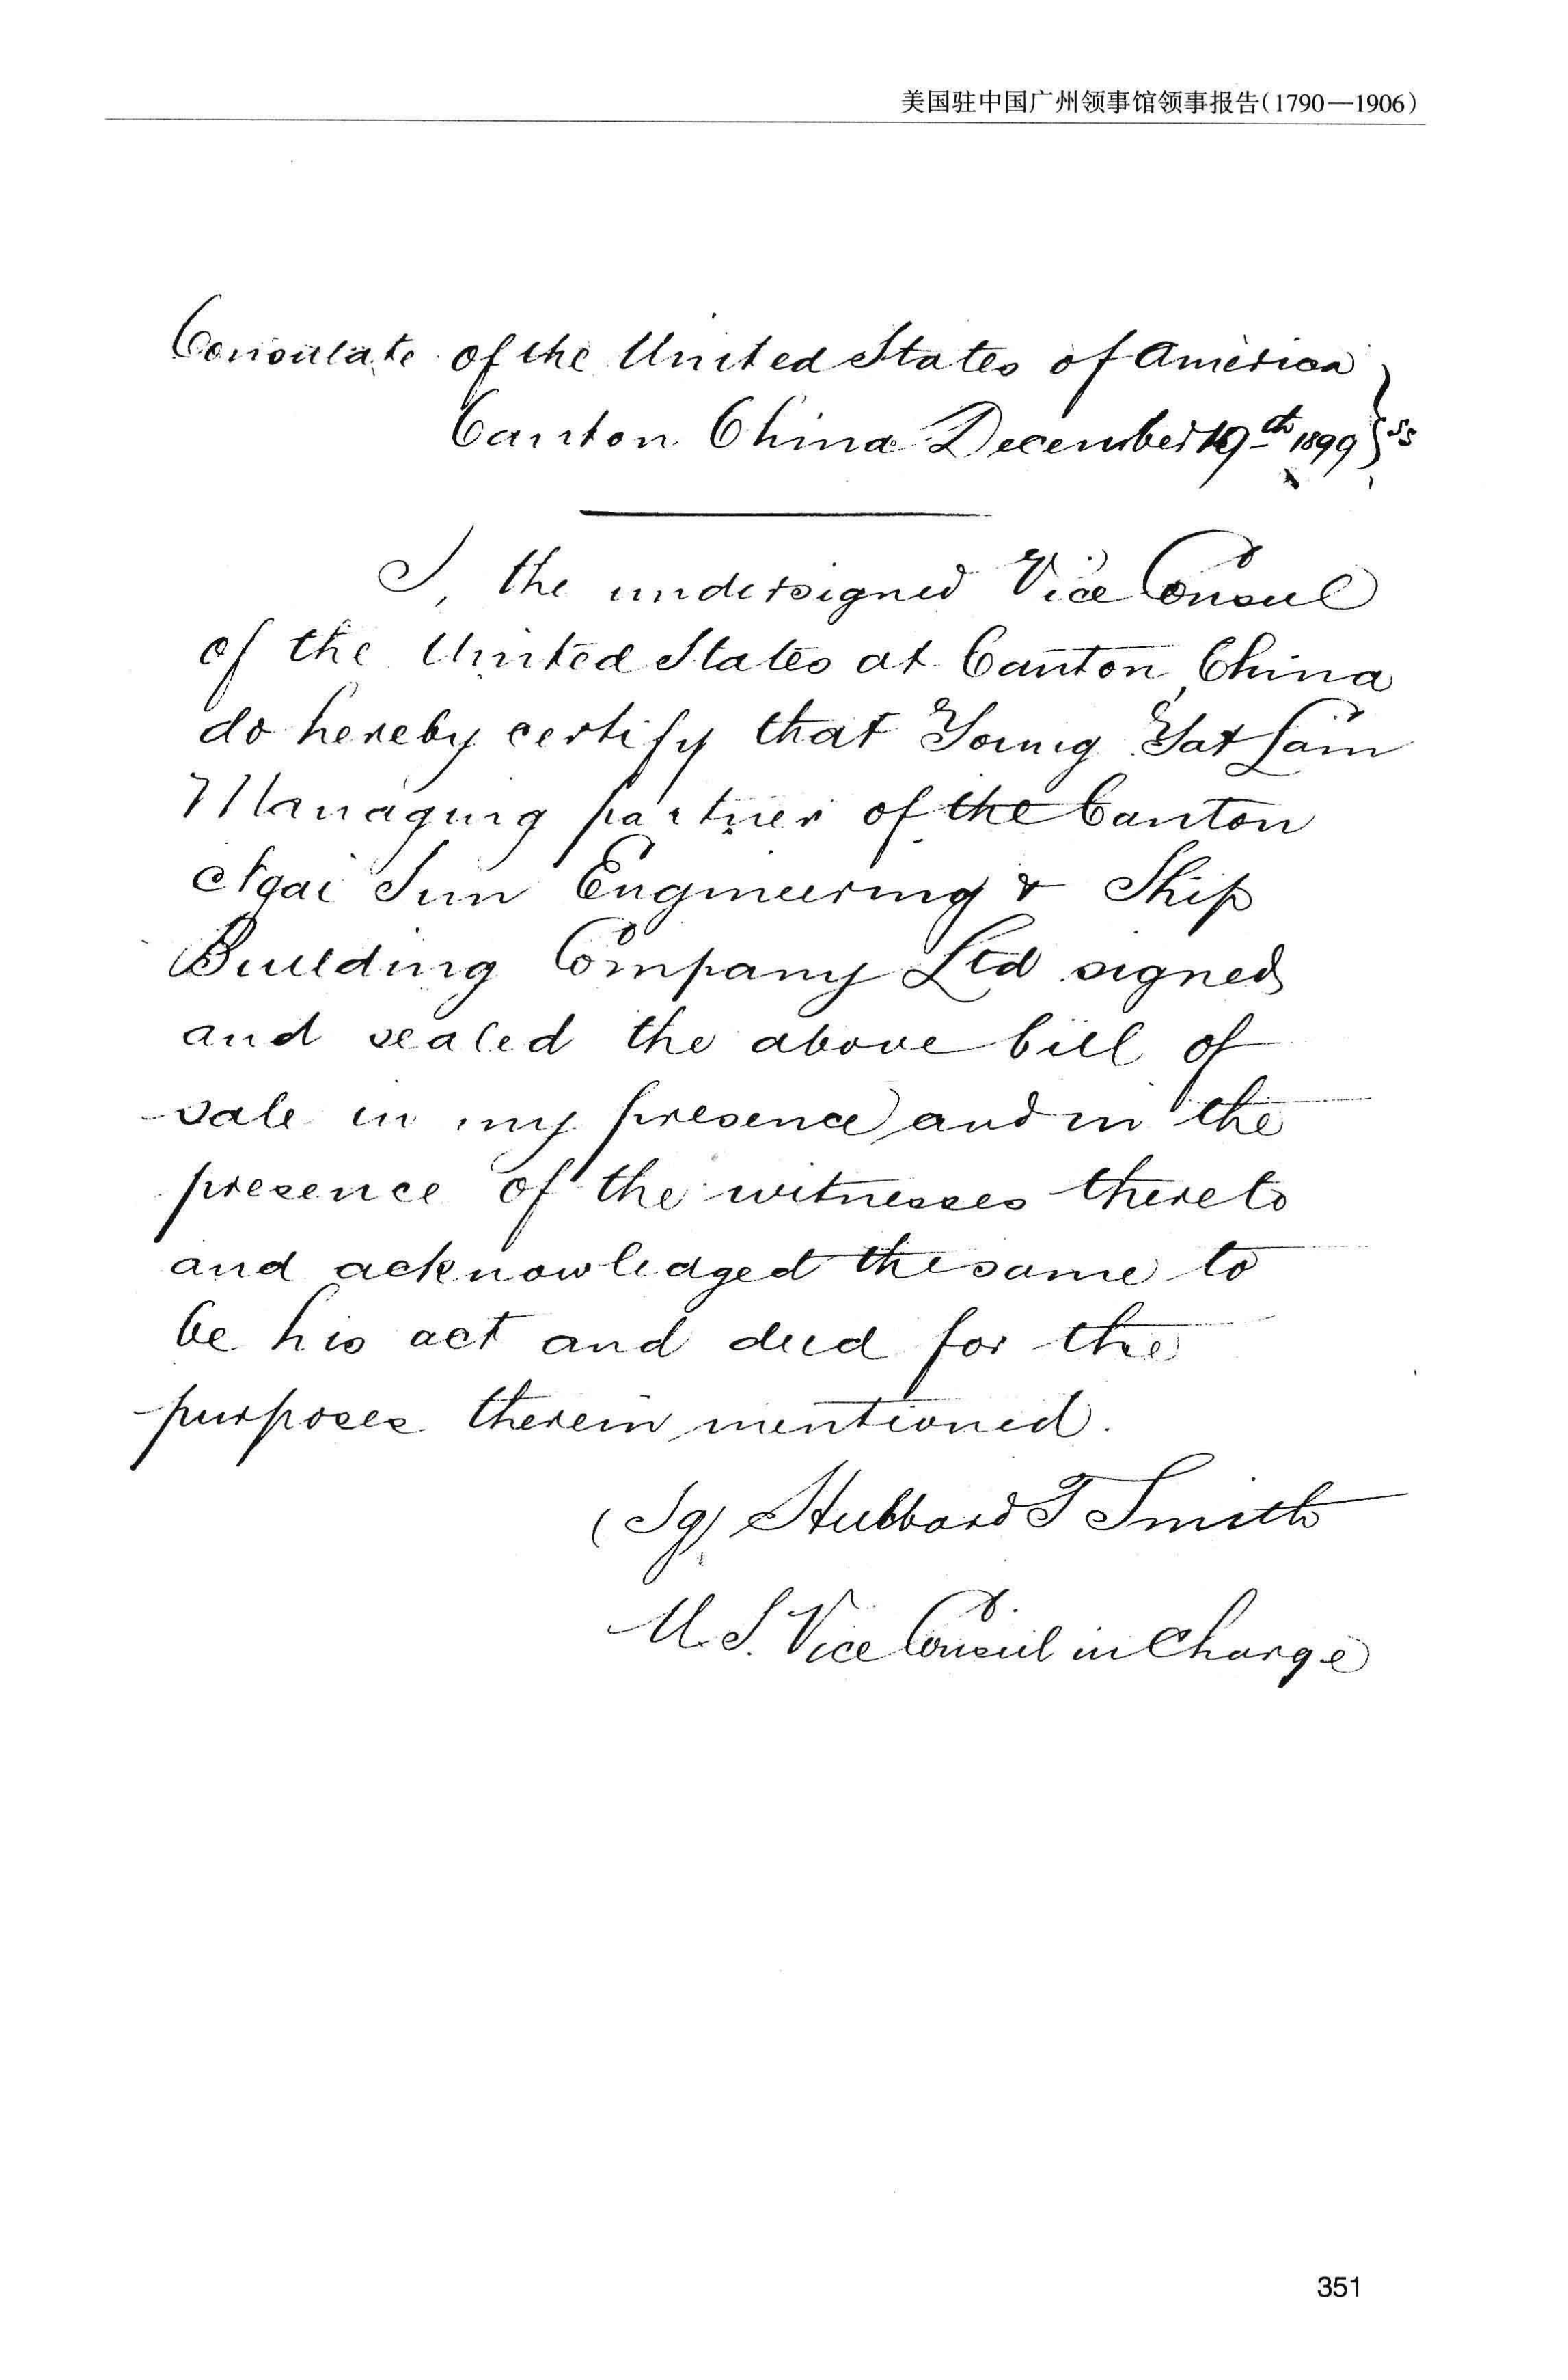 美国驻中国广州领事馆领事报告(1790—1906)
Consulate of the United States of America
Canton China December 19th 1899 } ss
I, the undersigned Vice Consul
of the United States at Canton, China
do hereby certify that Young Yat Lam
Managing partner of the Canton
Ngai Sun Engineering & Ship
Building Company Ltd signed
and sealed the above bill of
sale in my presence and in the
presence of the witnesses thereto
and acknowledged the same to
be his act and deed for the
purposes therein mentioned.
(Sg) Hubbard T Smith
U.S. Vice Consul in Charge
351